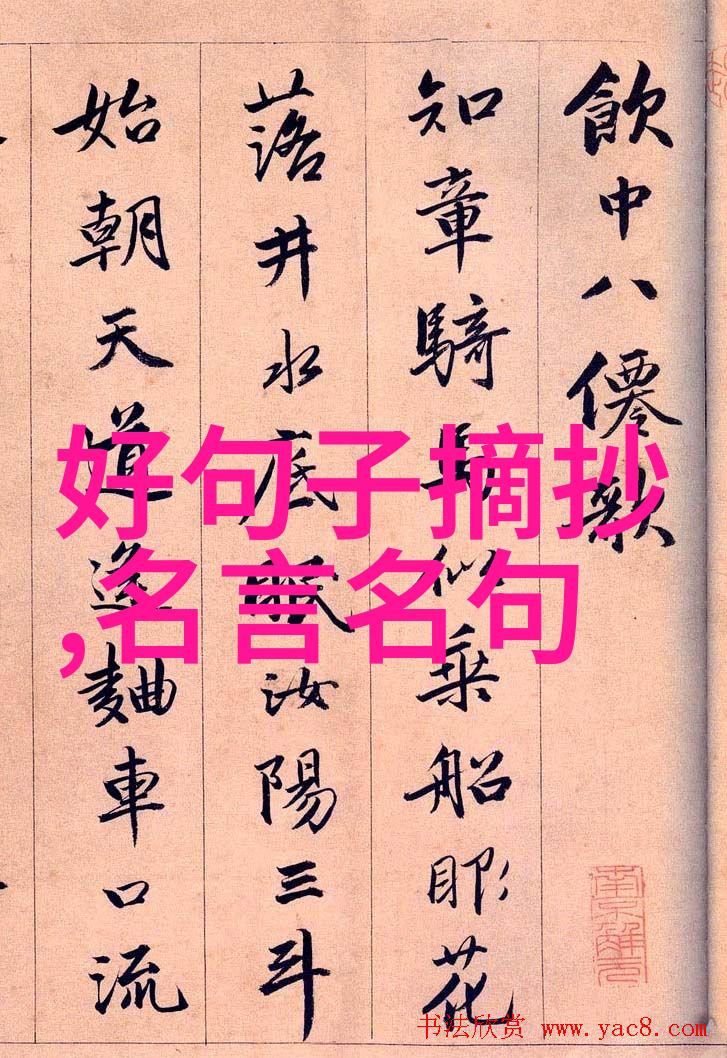 飲中八僊歌
知章騎馬似乘船眼花
落井水底眠汝陽三斗
始朝天道逢麯車口流
好句子摘抄
,名言名句
書法欣赏 www.yac8.com